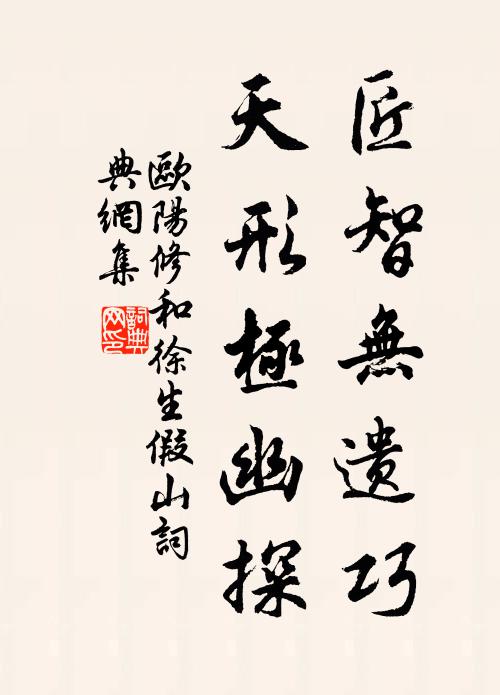 匠智無遺巧
天形極幽探
歐陽修和徐生假山詞
典網集
詞典
网印